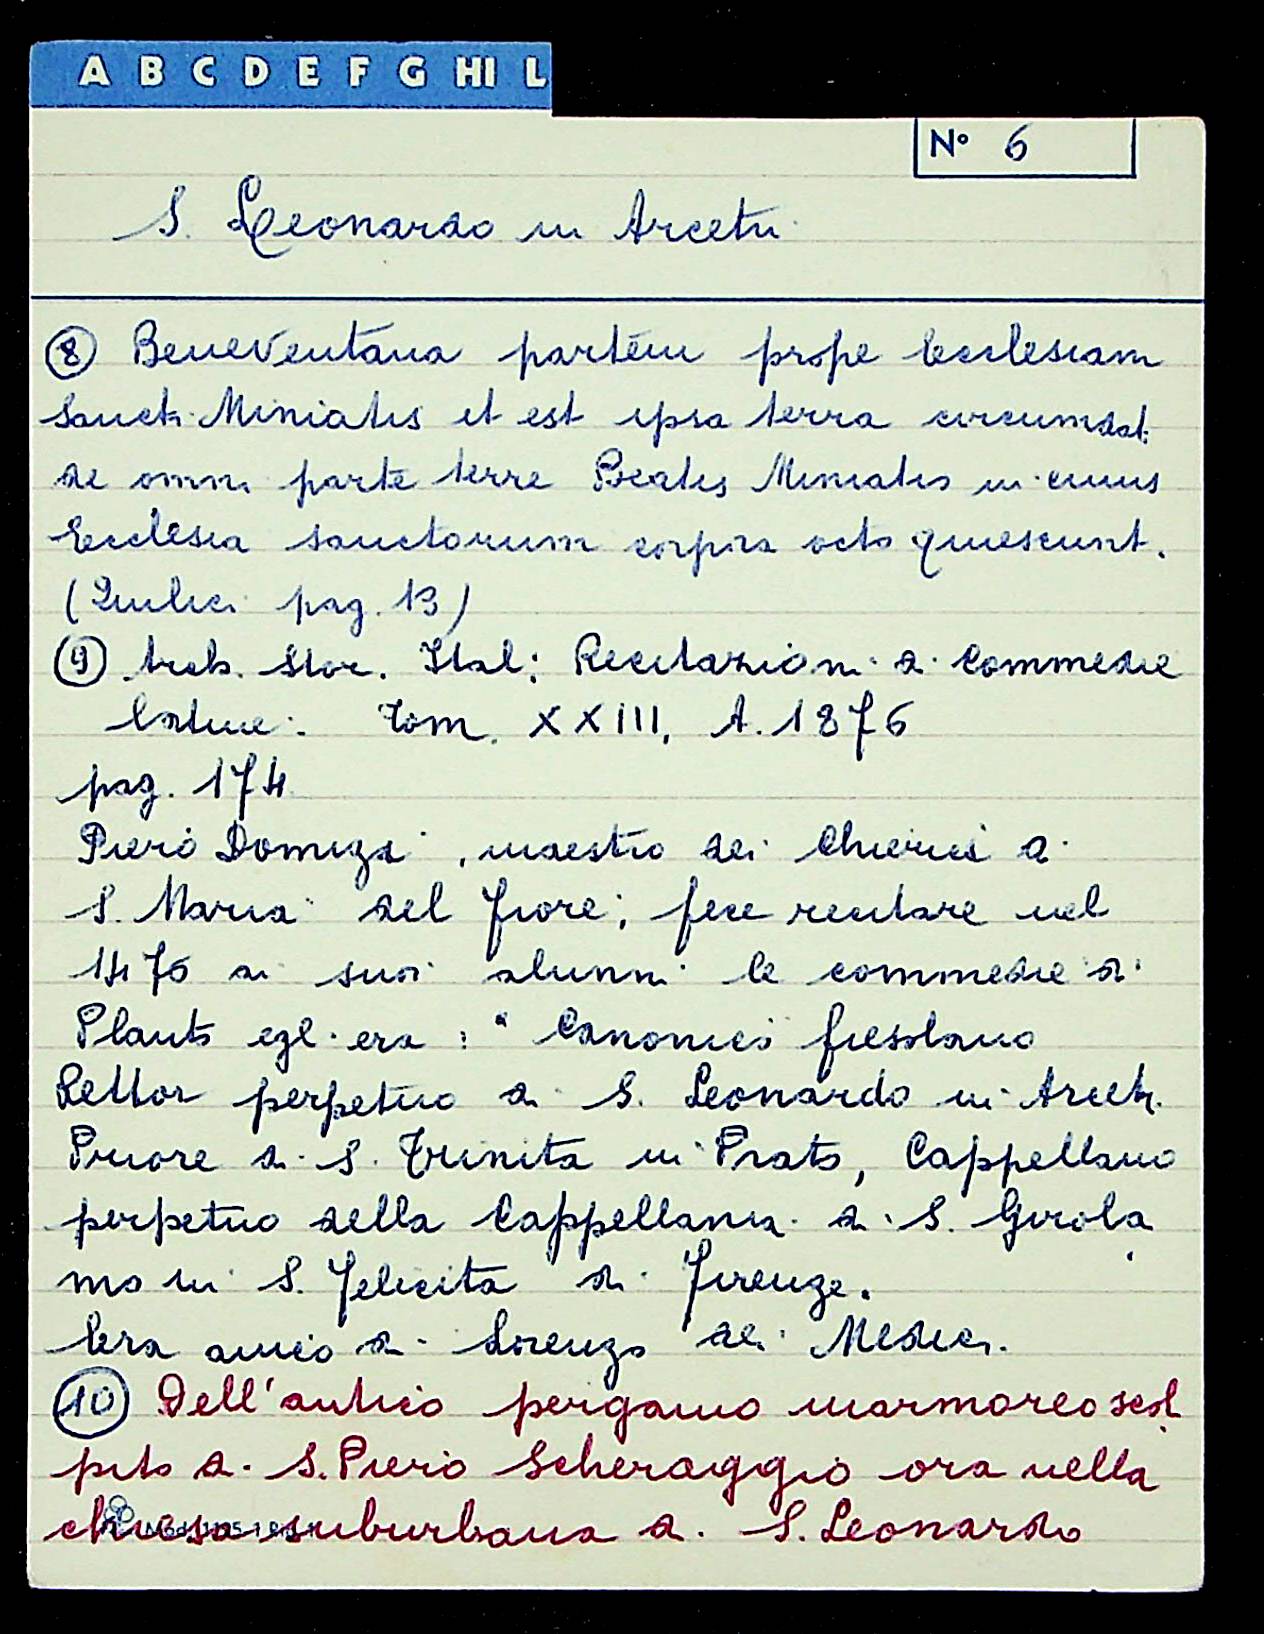 A B C D E F G HI L
N° 6
S. Leonardo in Arcetri
⑧ Beneventana partem prope Ecclesiam
Sancti Miniatis et est ipsa terra circumdat.
de omni parte terre Beatis Miniatis in cuius
Ecclesia sanctorum corpora octo quiescunt.
(Quilici pag. 13)
⑨ Arch. Stor. Ital: Recitazioni di Commedie
latine. Tom. XXIII, A. 1876
pag. 174
Piero Domizi, maestro dei Chierici di
S. Maria del Fiore; fece recitare nel
1476 ai suoi alunni le commedie di
Plauto egli era: "Canonico fiesolano
Rettor perpetuo di S. Leonardo in Arcetri
Priore di S. Trinita in Prato, Cappellano
perpetuo della Cappellania di S. Girola
mo in S. Felicita di Firenze.
Era amico di Lorenzo dei Medici.
⑩ Dell'antico pergamo marmoreo scol
pito di S. Piero Scheraggio ora nella
chiesa suburbana di S. Leonardo